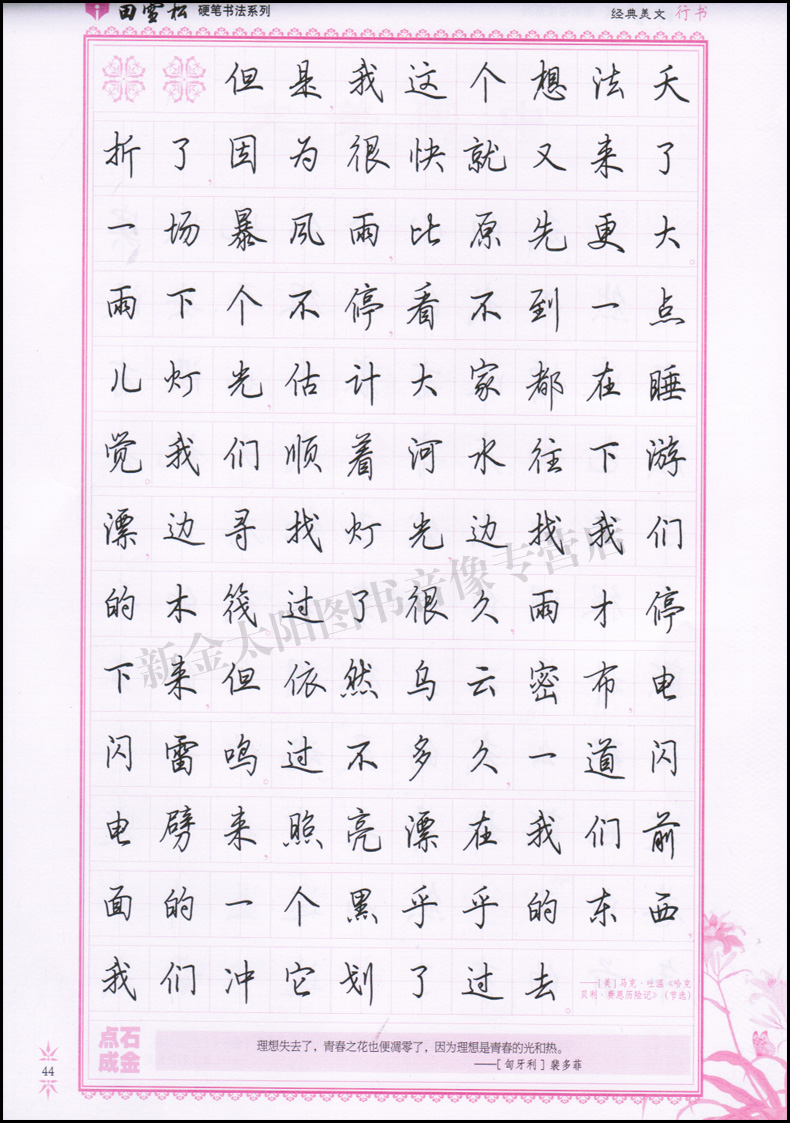 田雪松 硬笔书法系列
经典美文 行书
但是我这个想法夭
折了因为很快，就又来了
一场暴风雨，比原先更大。
雨下个不停，看不到一点
儿灯光，估计大家都在睡
觉。我们顺着河水往下游
漂，边寻找灯光，边找我们
的木筏。过了很久，雨才停
下来，但依然乌云密布，电
闪雷鸣。过不多久，一道闪
电劈来，照亮漂在我们前
面的一个黑乎乎的东西，
我们冲它划了过去。
——[美]马克·吐温《哈克
贝利·费恩历险记》（节选）
新金太阳图书音像专营店
点石
成金
理想失去了，青春之花也便凋零了，因为理想是青春的光和热。
——[匈牙利]裴多菲
44